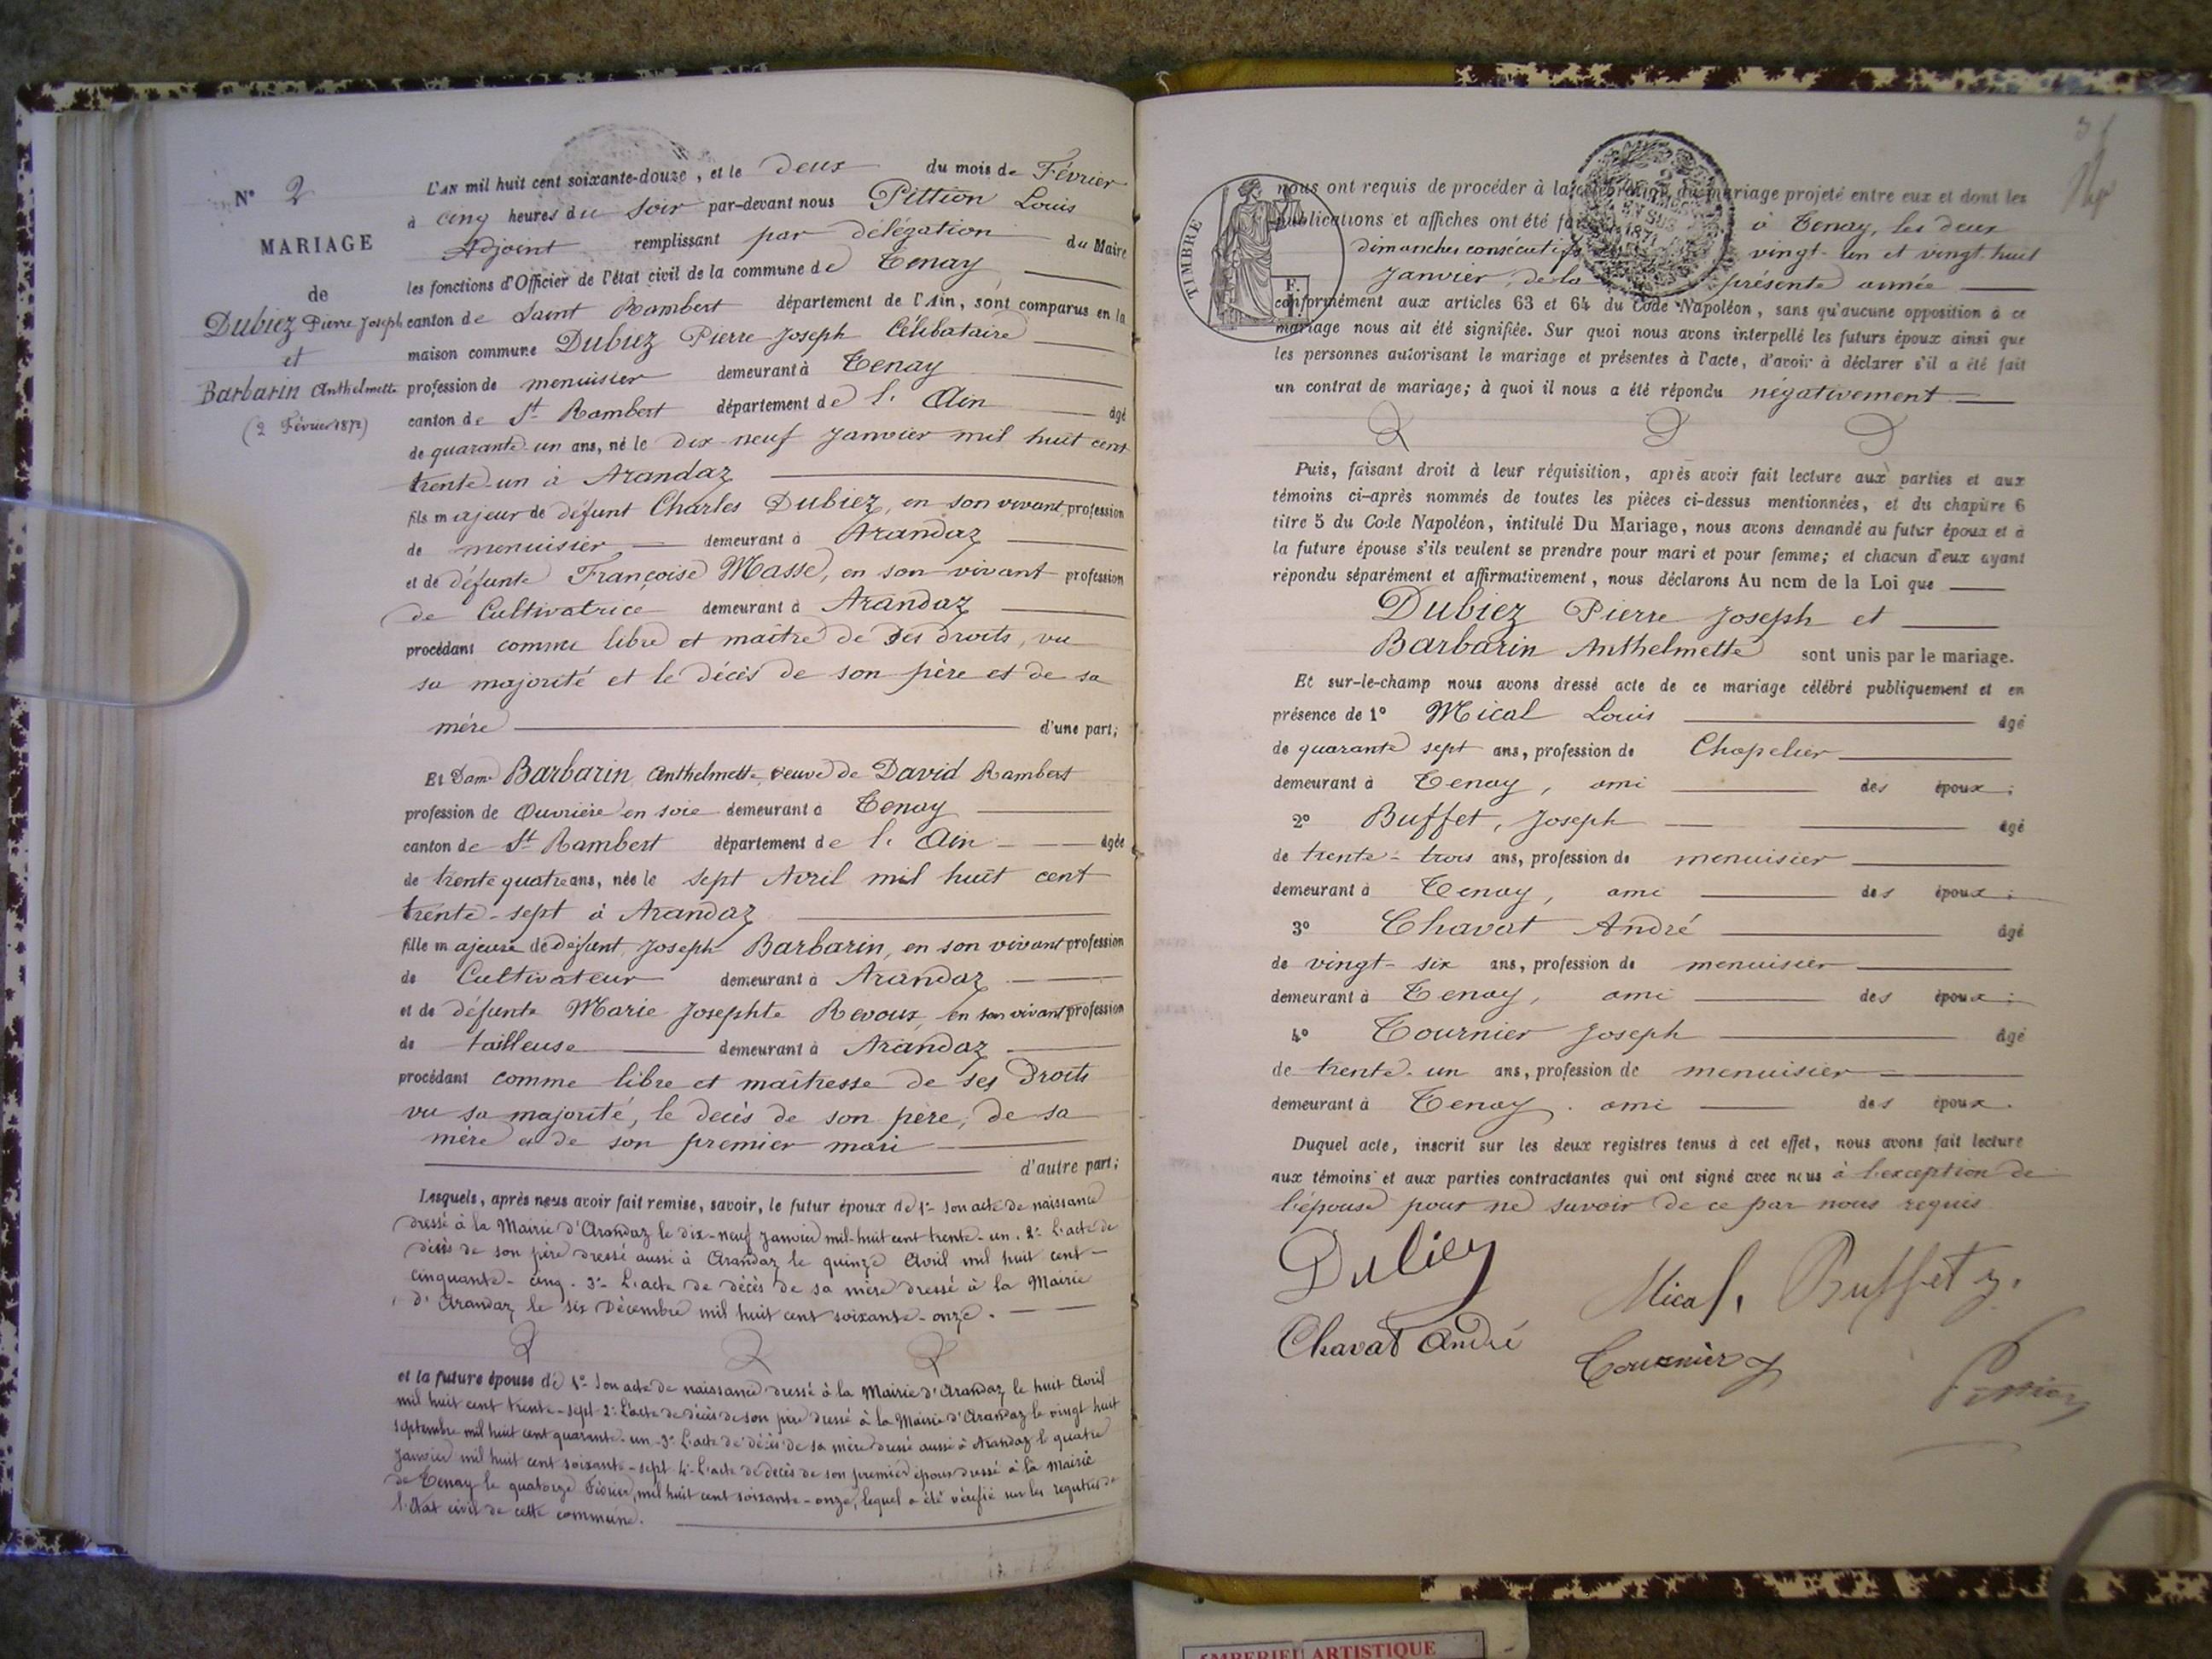 N° 2
MARIAGE
de
Dubiez Pierre Joseph
et
Barbarin Anthelmette
(2 Février 1872)
L'AN mil huit cent soixante-douze, et le deux du mois de Février
à cinq heures du soir par-devant nous Pittion Louis
Adjoint remplissant par délégation du Maire
les fonctions d'Officier de l'état civil de la commune de Tenay
canton de Saint Rambert département de l'Ain, sont comparus en la
maison commune Dubiez Pierre Joseph Célibataire
profession de menuisier demeurant à Tenay
canton de St Rambert département de l'Ain âgé
de quarante-un ans, né le dix-neuf Janvier mil huit cent
trente-un à Arandaz
fils majeur de défunt Charles Dubiez, en son vivant profession
de menuisier demeurant à Arandaz
et de défunte Françoise Masse, en son vivant profession
de Cultivatrice demeurant à Arandaz
procédant comme libre et maître de ses droits, vu
sa majorité et le décès de son père et de sa
mère d'une part;
Et Dame Barbarin Anthelmette, veuve de David Rambert
profession de Ouvrière en soie demeurant à Tenay
canton de St Rambert département de l'Ain âgée
de trente quatre ans, née le sept Avril mil huit cent
trente-sept à Arandaz
fille majeure de défunt Joseph Barbarin, en son vivant profession
de Cultivateur demeurant à Arandaz
et de défunte Marie Josephte Revoux, en son vivant profession
de tailleuse demeurant à Arandaz
procédant comme libre et maîtresse de ses Droits
vu sa majorité, le decès de son père, de sa
mère et de son premier mari
d'autre part;
Lesquels, après nous avoir fait remise, savoir, le futur époux de 1° son acte de naissance
dressé à la Mairie d'Arandaz le dix-neuf Janvier mil-huit cent trente-un. 2° L'acte de
décès de son père dressé aussi à Arandaz le quinze Avril mil huit cent
cinquante-cinq. 3° L'acte de décès de sa mère dressé à la Mairie
d'Arandaz le six Décembre mil huit cent soixante-onze.
et la future épouse de 1° Son acte de naissance dressé à la Mairie d'Arandaz le huit Avril
mil huit cent trente-sept 2° L'acte de décès de son père dressé à la Mairie d'Arandaz le vingt huit
septembre mil huit cent quarante-un 3° L'acte de décès de sa mère dressé aussi à Arandaz le quatre
Janvier mil huit cent soixante-sept 4° L'acte de decès de son premier époux dressé à la mairie
de Tenay le quatorze Février, mil huit cent soixante-onze, lequel a été vérifié sur les registres de
l'état civil de cette commune.
TIMBRE
F.
1871
nous ont requis de procéder à la célébration du mariage projeté entre eux et dont les
publications et affiches ont été faites à Tenay, les deux
dimanches consécutifs vingt-un et vingt-huit
Janvier, de la présente année
conformément aux articles 63 et 64 du Code Napoléon, sans qu'aucune opposition à ce
mariage nous ait été signifiée. Sur quoi nous avons interpellé les futurs époux ainsi que
les personnes autorisant le mariage et présentes à l'acte, d'avoir à déclarer s'il a été fait
un contrat de mariage; à quoi il nous a été répondu négativement
Puis, faisant droit à leur réquisition, après avoir fait lecture aux parties et aux
témoins ci-après nommés de toutes les pièces ci-dessus mentionnées, et du chapitre 6
titre 5 du Code Napoléon, intitulé Du Mariage, nous avons demandé au futur époux et à
la future épouse s'ils veulent se prendre pour mari et pour femme; et chacun d'eux ayant
répondu séparément et affirmativement, nous déclarons Au nom de la Loi que
Dubiez Pierre Joseph et
Barbarin Anthelmette sont unis par le mariage.
Et sur-le-champ nous avons dressé acte de ce mariage célébré publiquement et en
présence de 1° Mical Louis âgé
de quarante sept ans, profession de Chapelier
demeurant à Tenay, ami des époux;
2° Buffet, Joseph âgé
de trente-trois ans, profession de menuisier
demeurant à Tenay, ami des époux;
3° Chavat André âgé
de vingt-six ans, profession de menuisier
demeurant à Tenay, ami des époux;
4° Tournier Joseph âgé
de trente-un ans, profession de menuisier
demeurant à Tenay. ami des époux.
Duquel acte, inscrit sur les deux registres tenus à cet effet, nous avons fait lecture
aux témoins et aux parties contractantes qui ont signé avec nous à l'exception de
l'épouse pour ne savoir de ce par nous requis
Dubiez
Mical. Buffet J.
Chavat André
Tournier J
Pittion
AMBERIEU ARTISTIQUE